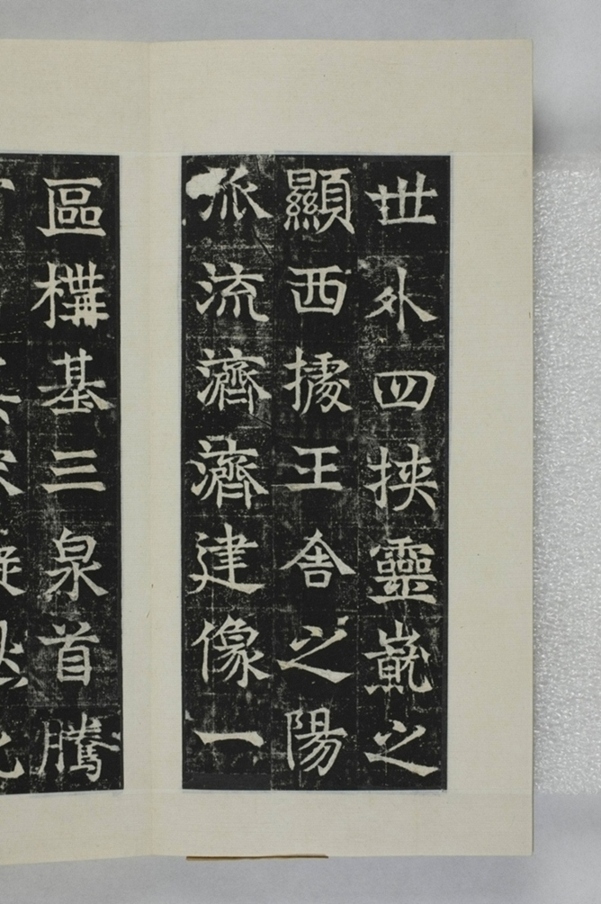 世外四挾靈巀之
顯西據王舍之陽
派流濟濟建像一
區構基三泉首騰